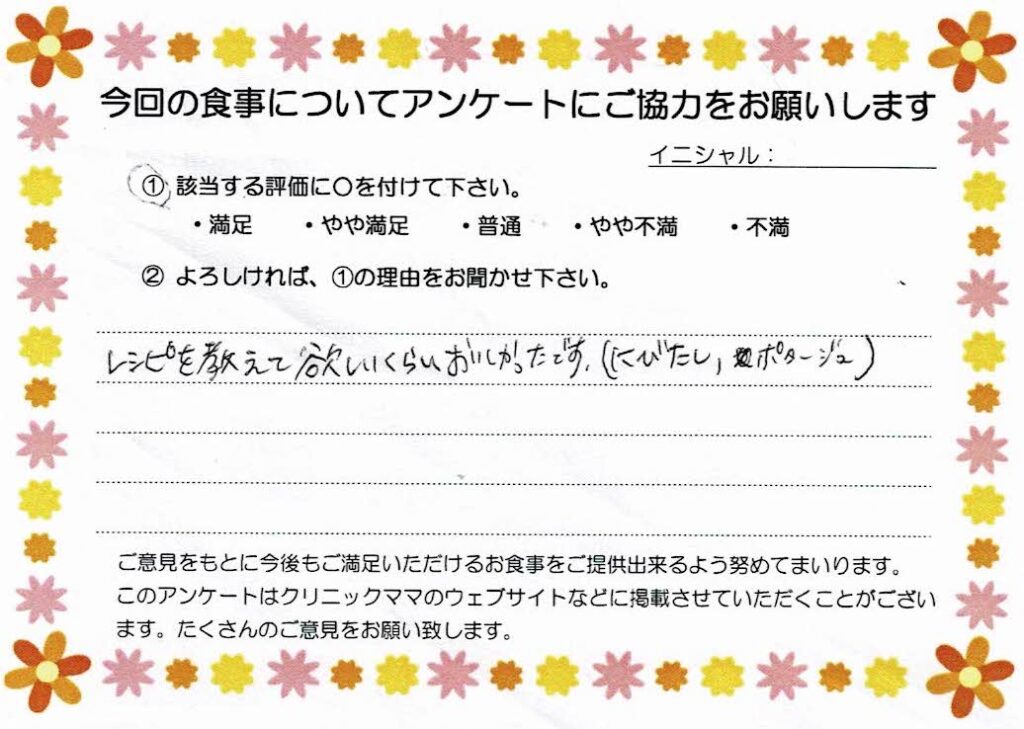 今回の食事についてアンケートにご協力をお願いします
イニシャル：
① 該当する評価に○を付けて下さい。
・満足 ・やや満足 ・普通 ・やや不満 ・不満
② よろしければ、①の理由をお聞かせ下さい。
レシピを教えて欲しいくらいおいしかったです。(にびたし, ポタージュ)
ご意見をもとに今後もご満足いただけるお食事をご提供出来るよう努めてまいります。
このアンケートはクリニックママのウェブサイトなどに掲載させていただくことがござい
ます。たくさんのご意見をお願い致します。